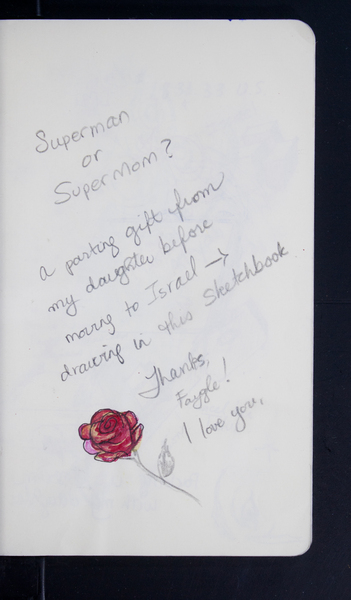 Superman
or
SuperMom?
a parting gift from
my daughter before
moving to Israel →
drawing in this Sketchbook
Thanks,
Faygle!
I love you,